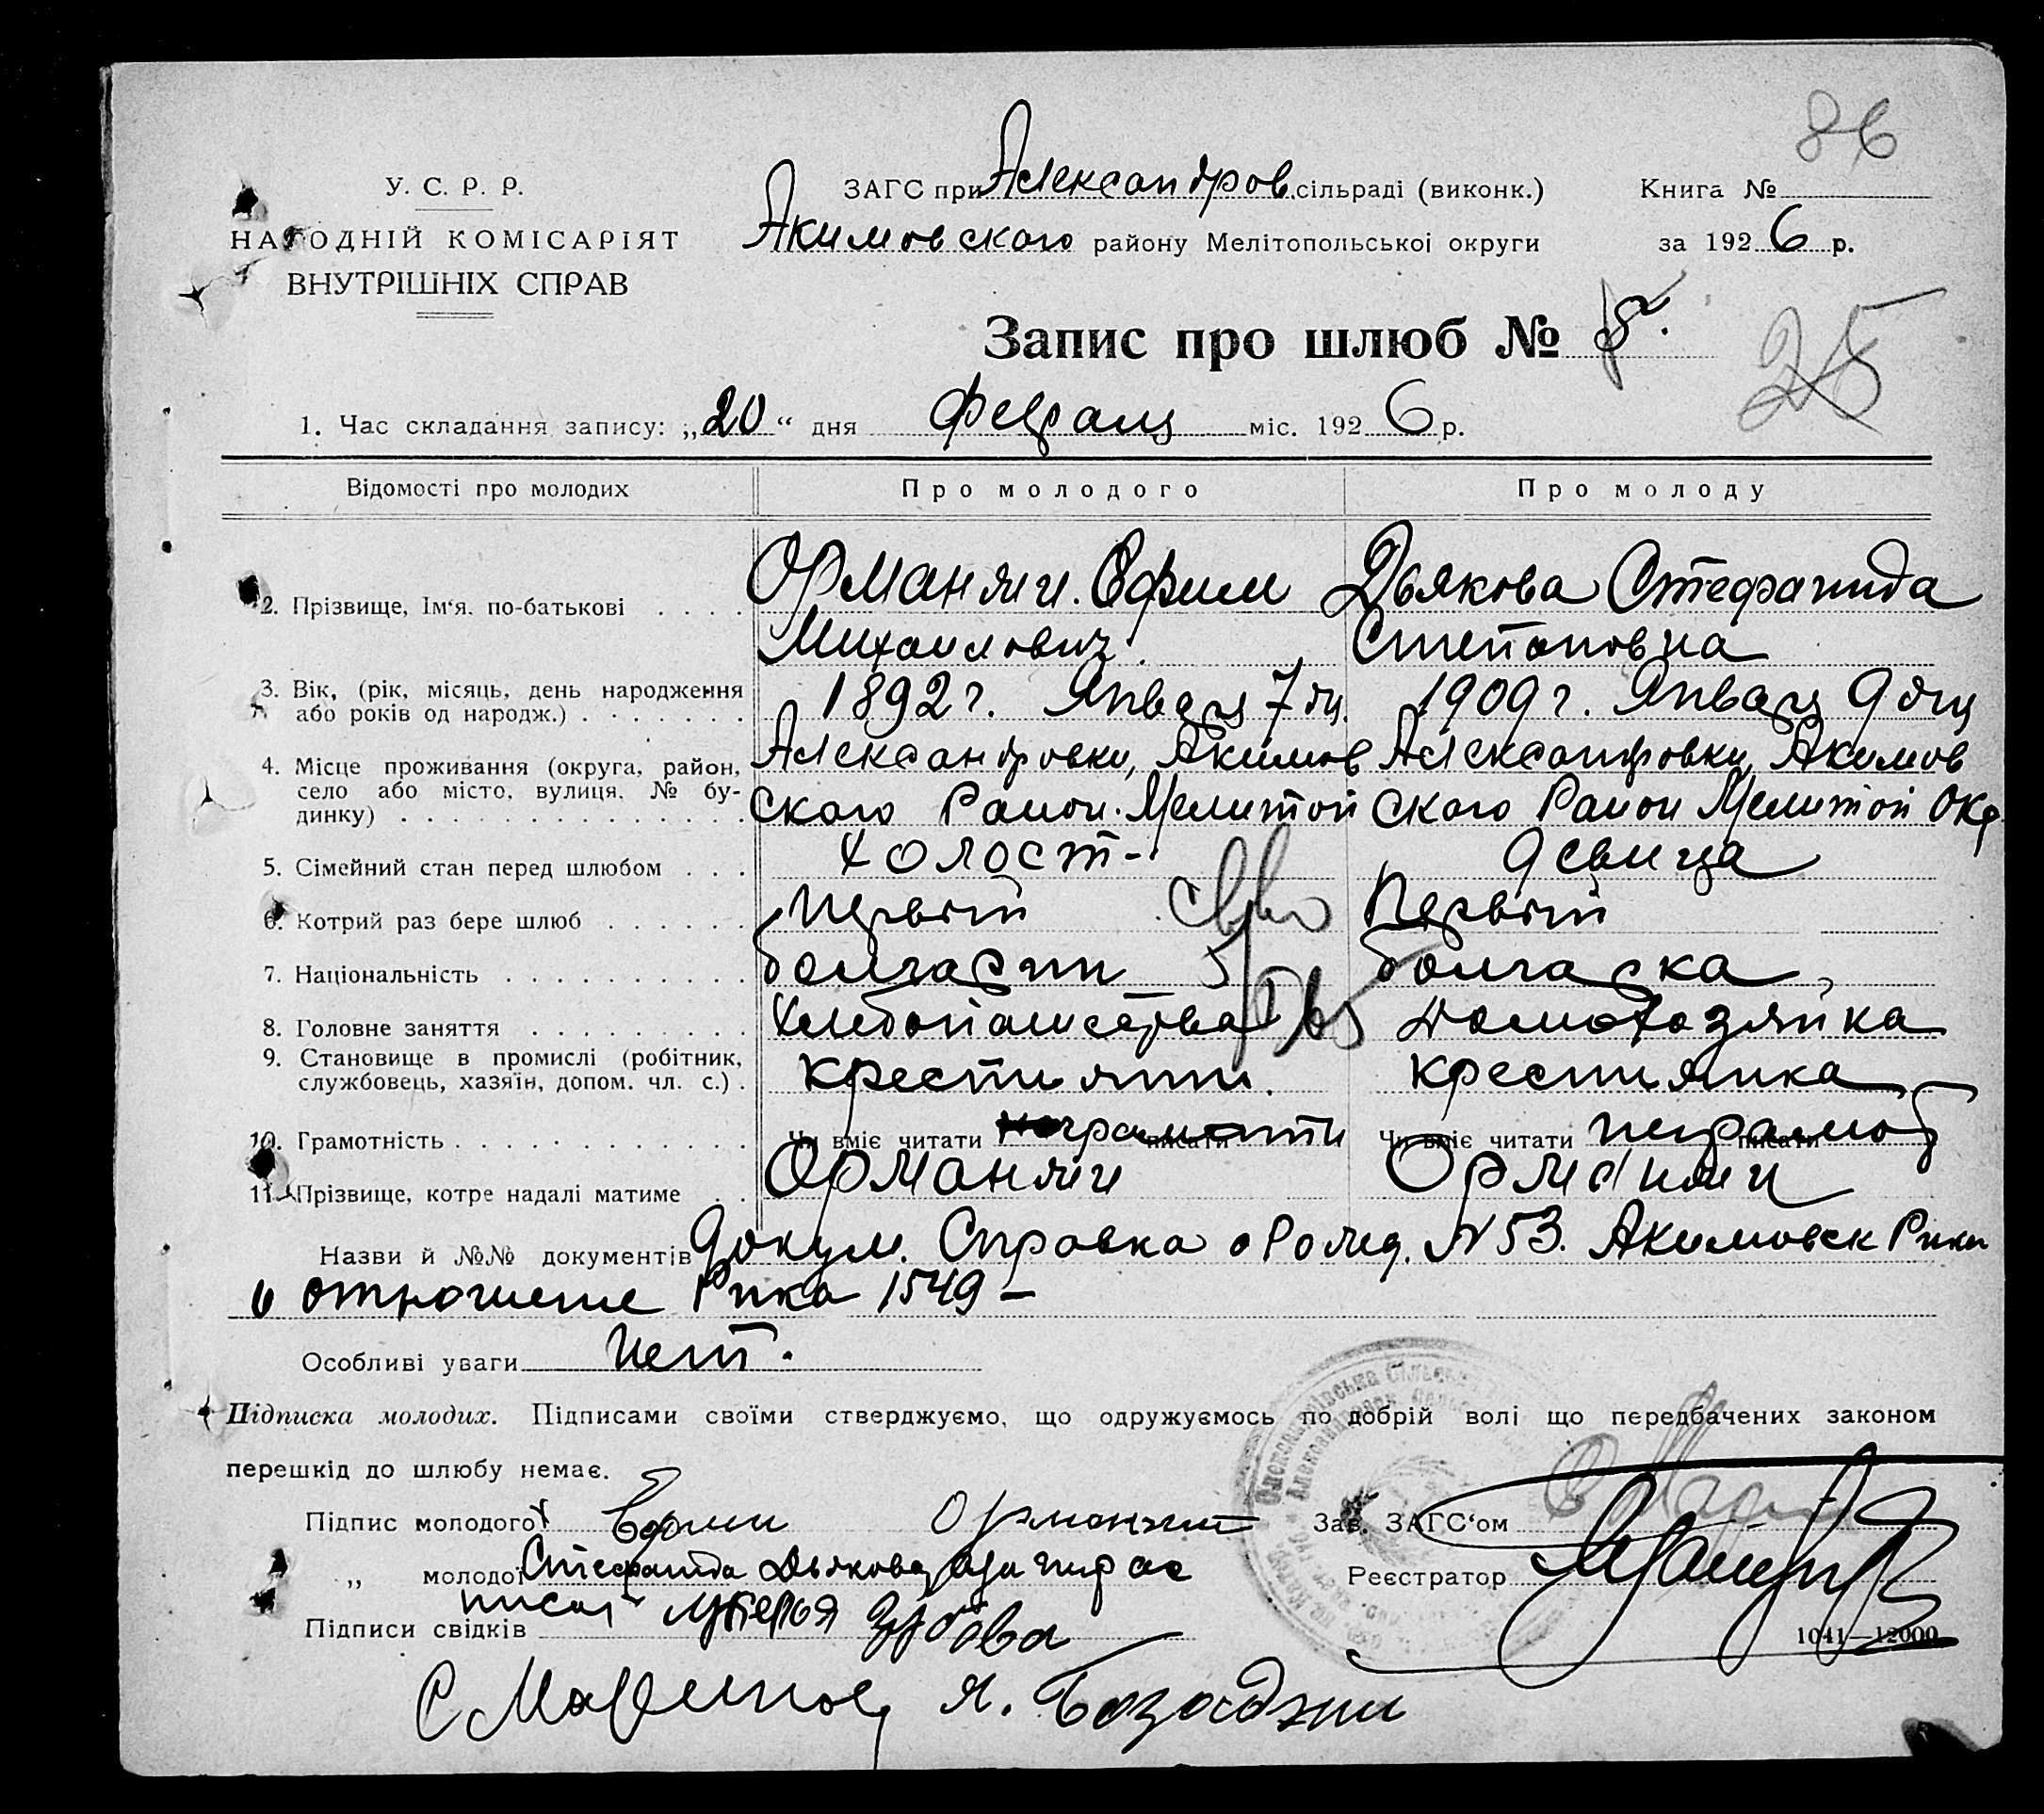 86
У. С. Р. Р.
НАРОДНІЙ КОМІСАРІЯТ
ВНУТРІШНІХ СПРАВ
ЗАГС при Александров. сільраді (виконк.)
Акимовского району Мелітопольської округи
Книга №
за 1926 р.
Запис про шлюб № 8
25
1. Час складання запису: „20“ дня Февраля міс. 1926 р.
Відомості про молодих
Про молодого
Про молоду
2. Прізвище, Ім'я. по-батькові
Орманжи. Ефим
Михаилович
Дьякова Стефанида
Степановна
3. Вік, (рік, місяць, день народження
або років од народж.)
1892 г. Января 7 дн.
1909 г. Января 9 дня
4. Місце проживання (округа, район,
село або місто, вулиця, № бу-
динку)
Александровки, Акимов
ского Район. Мелитоп
Александровки, Акимов
ского Район Мелитоп Окр
5. Сімейний стан перед шлюбом
холост-
девица
6. Котрий раз бере шлюб
первый
Первый
7. Національність
болгарин
болгарка
8. Головне заняття
Хлебопашества
домохозяйка
9. Становище в промислі (робітник,
службовець, хазяїн, допом. чл. с.)
крестьянин.
крестьянка
10. Грамотність
Чи вміє читати писати
Чи вміє читати неграмот писати
11. Прізвище, котре надалі матиме
Орманжи
Орманжи
Назви й №№ документів Докум. Справка о Рожд. N 53. Акимовск Рика
и отношение Рика 1549 -
Особливі уваги нет.
Підписка молодих. Підписами своїми стверджуємо, що одружуємось по добрій волі що передбачених законом
перешкід до шлюбу немає.
Підпис молодого Ефим Орманжи
„ молодої Стефанида Дьякова
Підписи свідків Зубова
Зав. ЗАГС'ом
Реєстратор
1041—12000
С Маринов Я. Базаджи